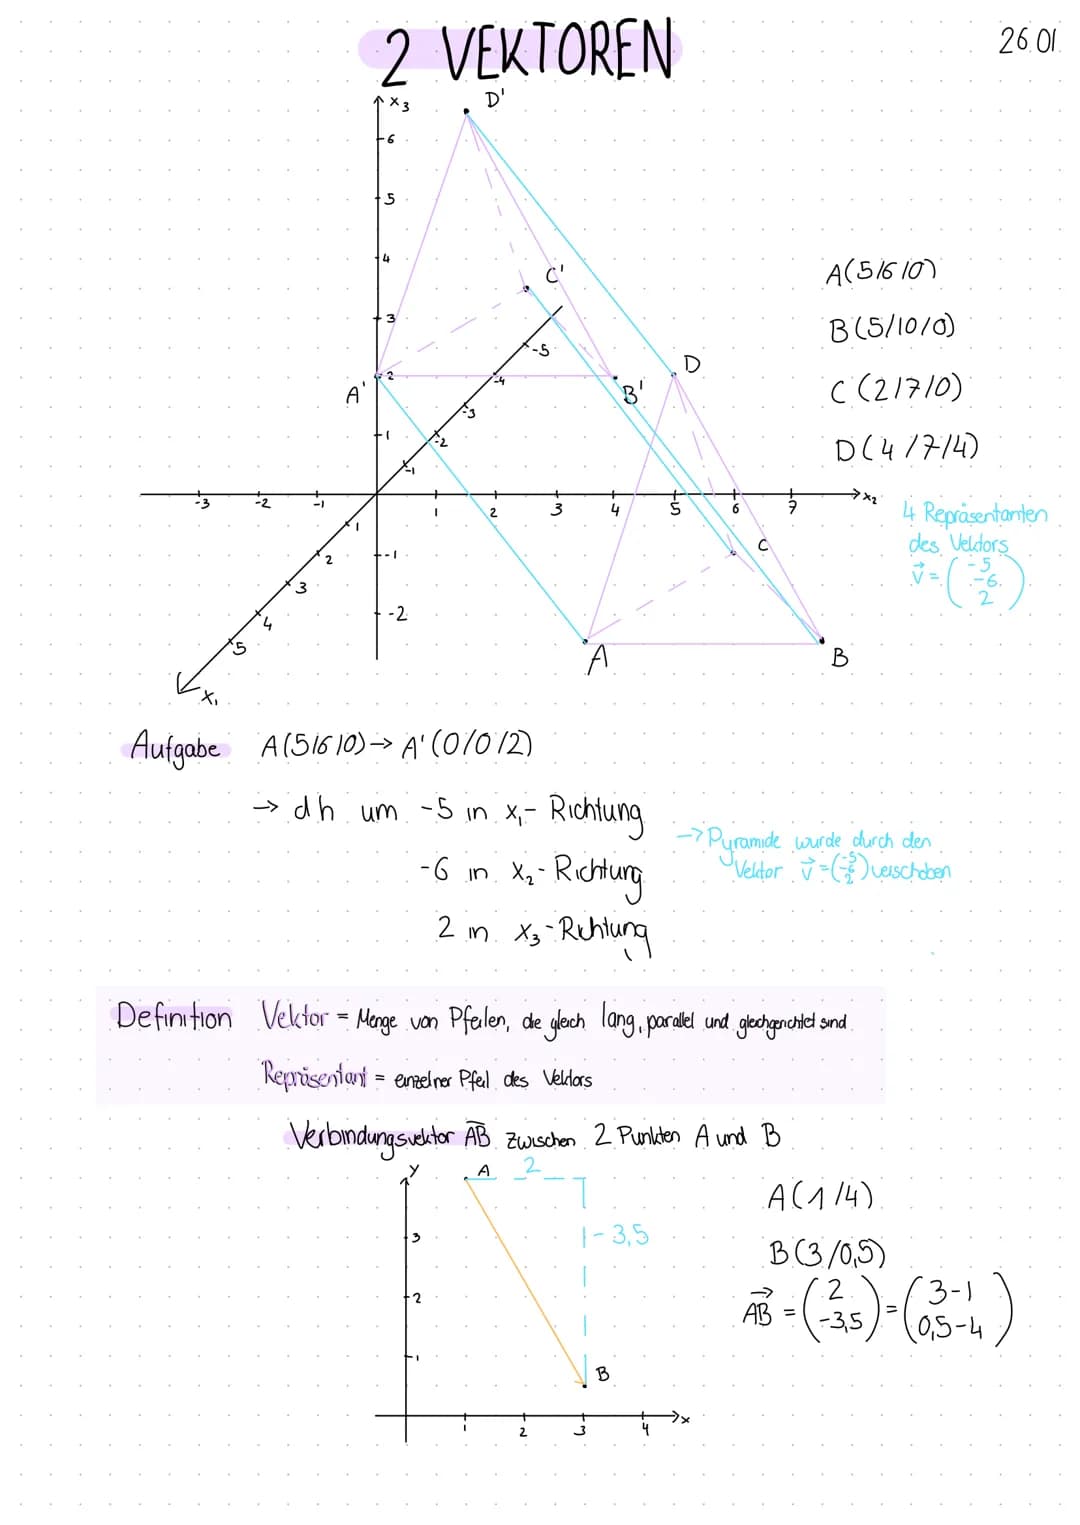 2 VEKTOREN
26.01.
x3
D'
6
5
4
C'
3
-5
A(5/6/0)
B(5/10/0)
D
2
-4
A'
B'
C(2/7/0)
-3
1
-2
D(4/7/4)
-1
-3 -2 -1 1 2 3 4 5 6 7 x2
4 Repräsentanten
des Vektors
v⃗ = (-5 -6 2)
1
C
2
-1
3
4
-2
5
A
B
x1
Aufgabe A(5/6/0) → A'(0/0/2)
→ dh um -5 in x1- Richtung
-6 in x2- Richtung
2 in x3- Richtung
→ Pyramide wurde durch den
Vektor v⃗ = (-5 -6 2) verschoben
Definition Vektor = Menge von Pfeilen, die gleich lang, parallel und gleichgerichtet sind
Repräsentant = einzelner Pfeil des Vektors
Verbindungsvektor AB zwischen 2 Punkten A und B
y
A
2
A(1/4)
3
-3,5
B(3/0,5)
2
AB⃗ = (2 -3,5) = (3-1 0,5-4)
1
B
1 2 3 4 x